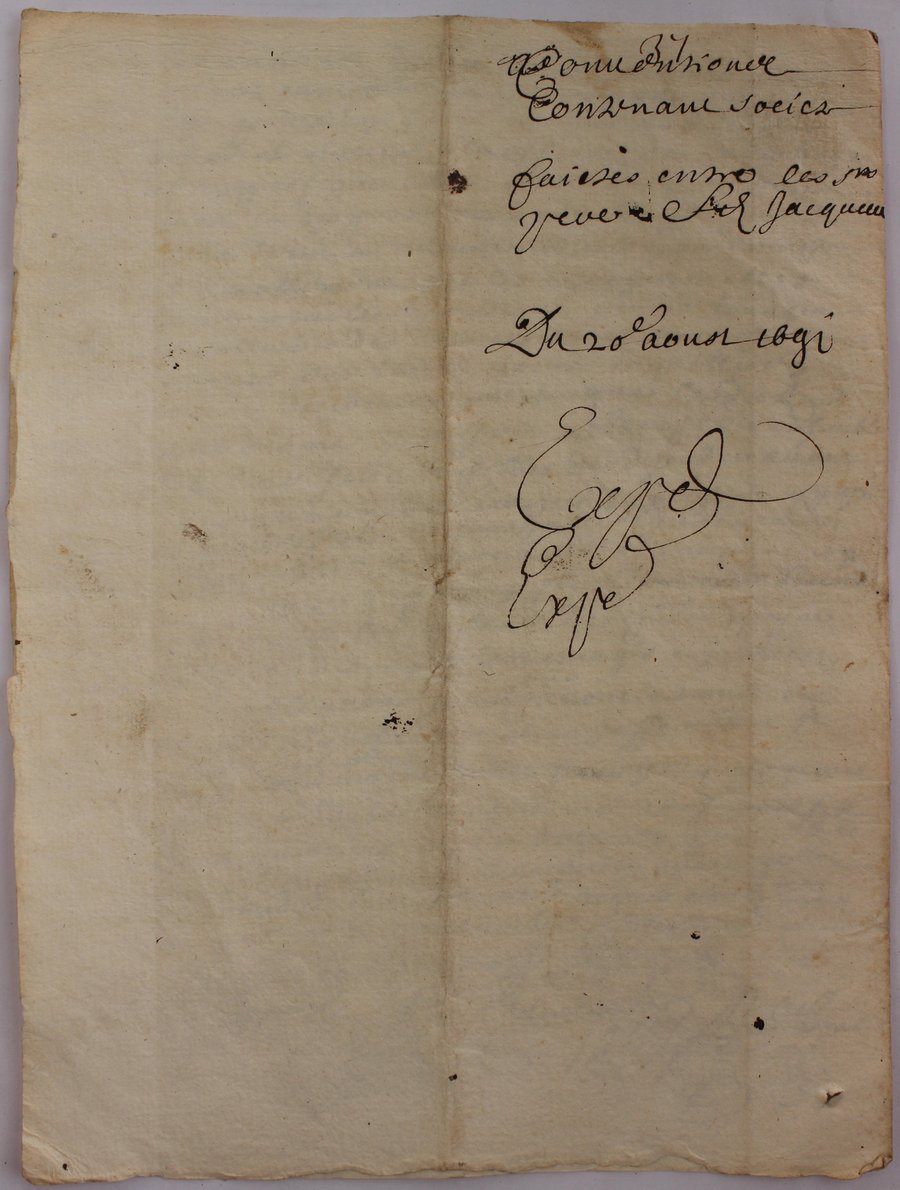 Conventions
Contenant societe
faictes entre les srs
Jacques
Du 20e aoust 1691
Exppe
Exppe